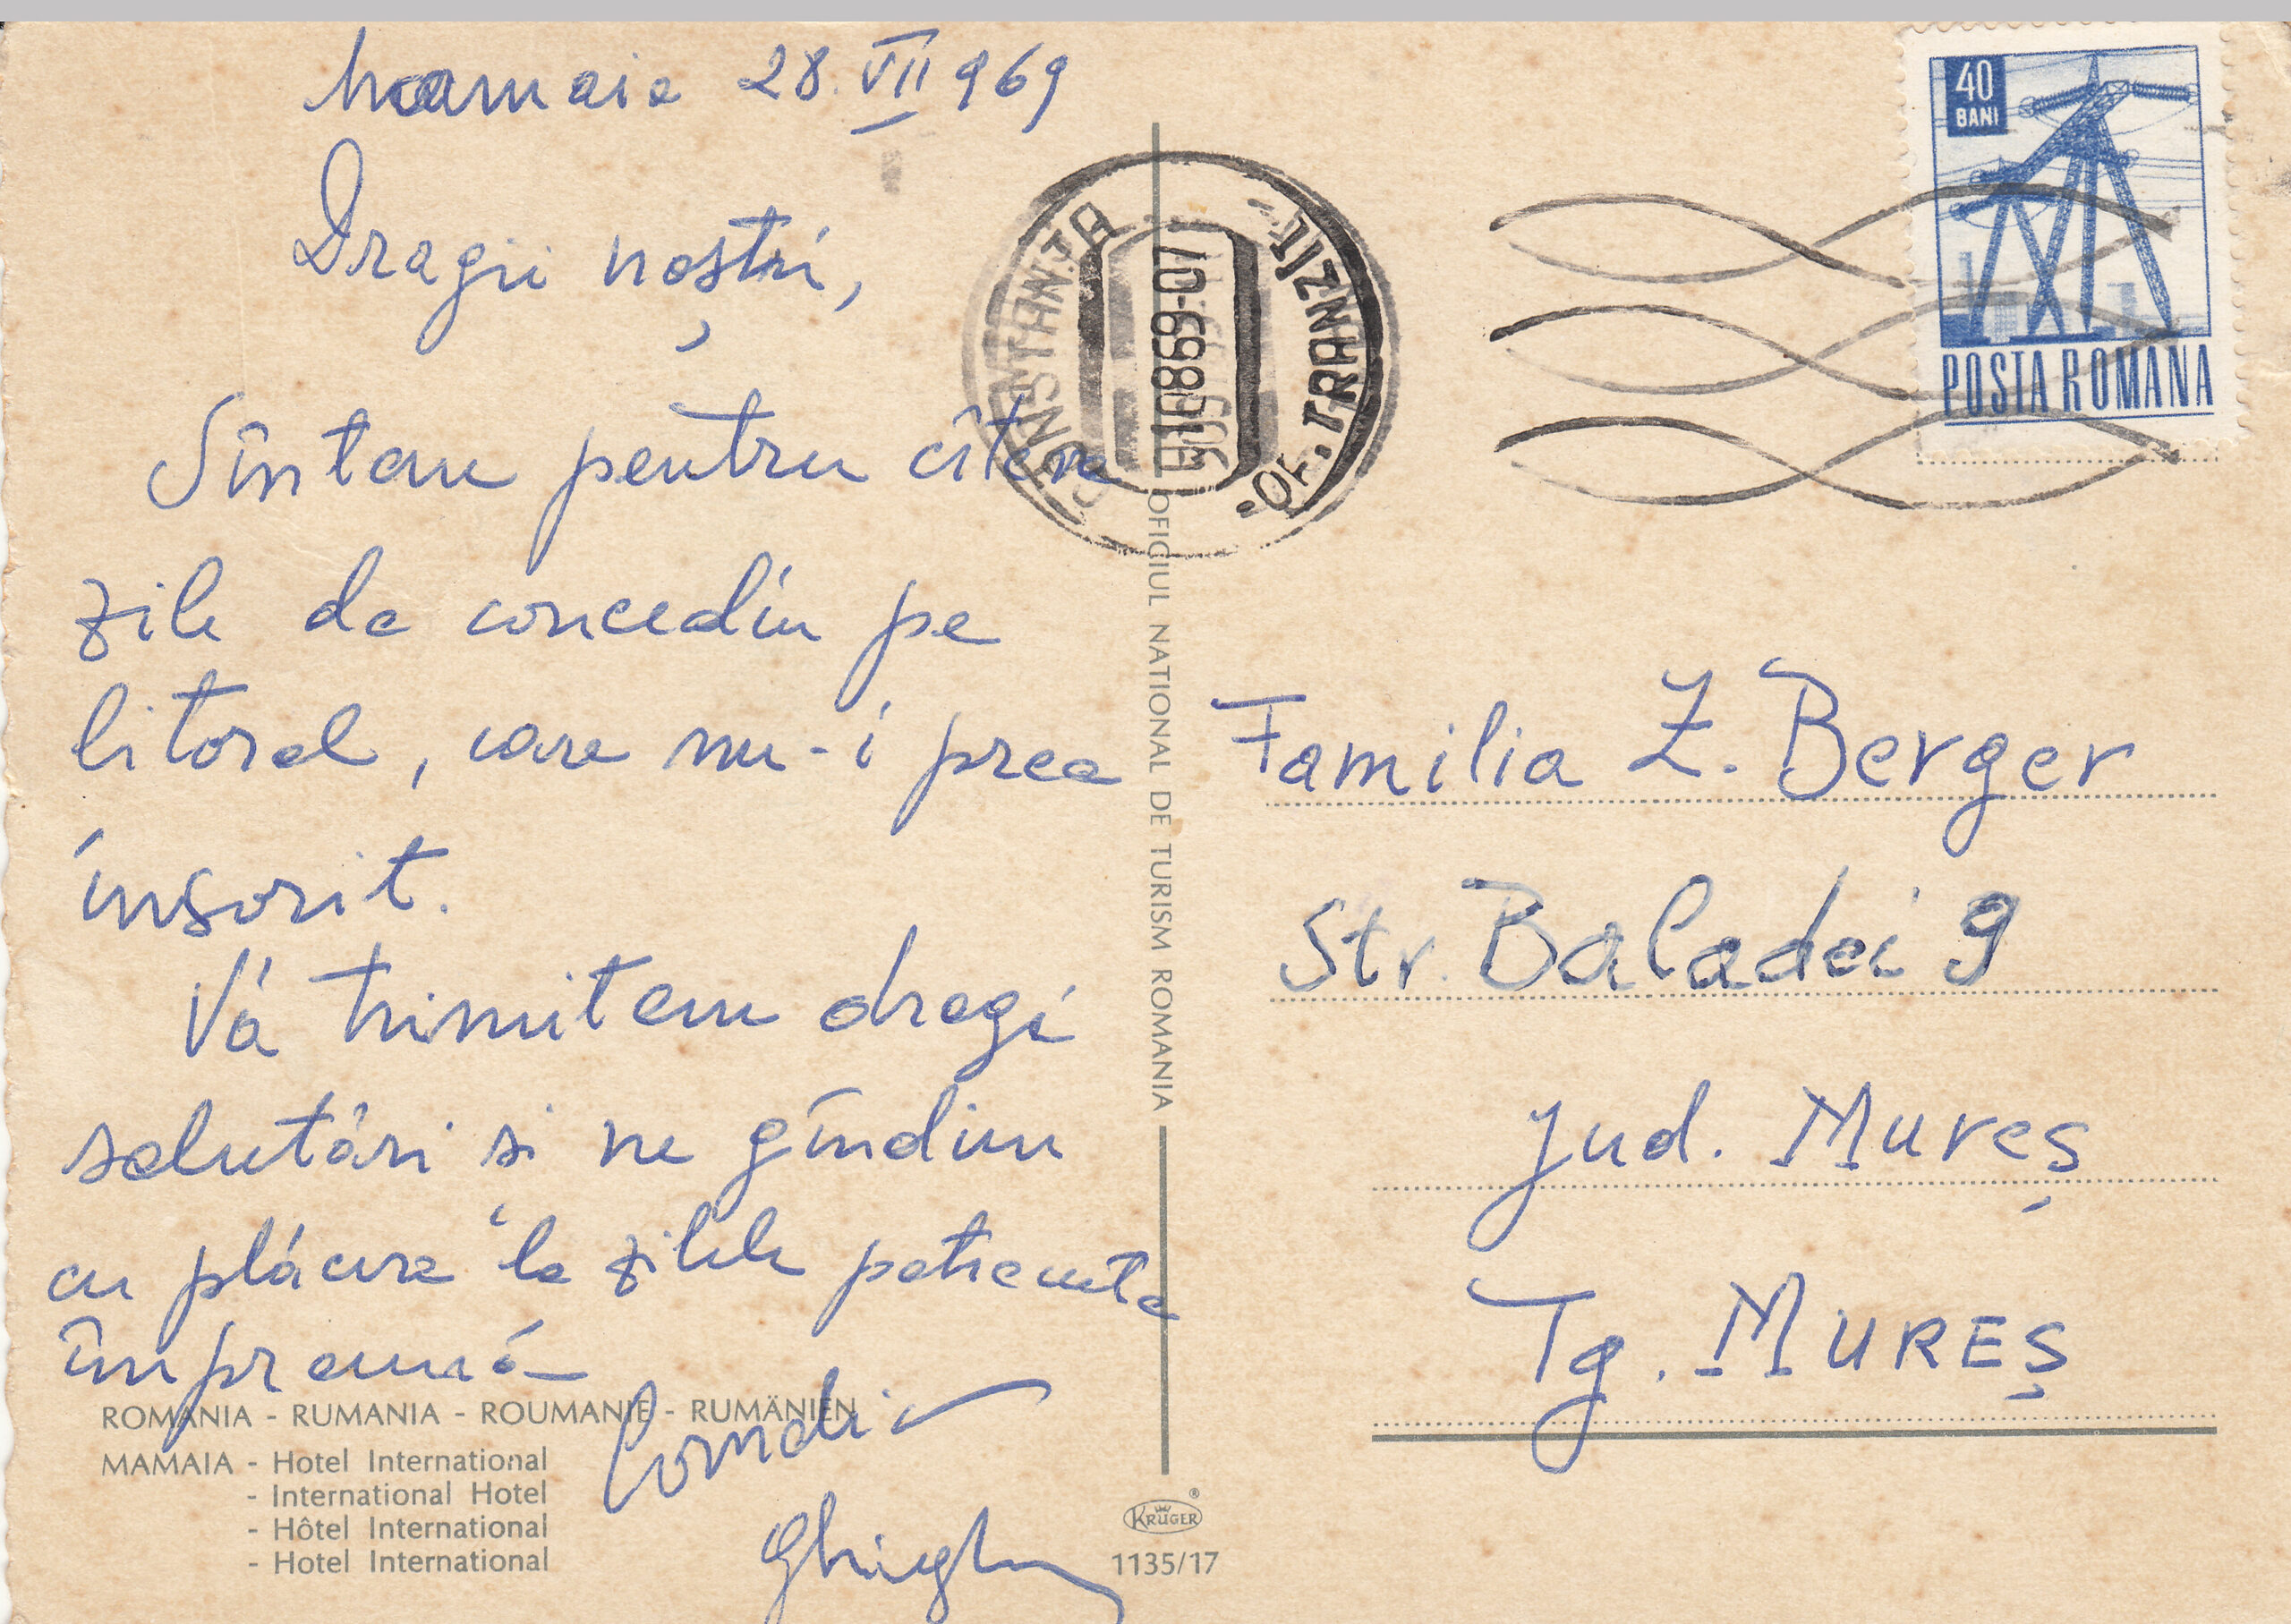 Mamaia 28.VII 969
Dragii noștri,
Sîntem pentru cîteva
zile de concediu pe
litoral, care nu-i prea
însorit.
Vă trimitem dragi
salutări și ne gîndim
cu plăcere la zilele petrecute
împreună
ROMANIA - RUMANIA - ROUMANIE - RUMÄNIEN
MAMAIA - Hotel International
- International Hotel
- Hôtel International
- Hotel International
OFICIUL NATIONAL DE TURISM ROMANIA
KRÜGER
1135/17
CONSTANTA
OF. TRANZIT
40
BANI
POSTA ROMANA
Familia Z. Berger
Str. Baladei 9
jud. Mureș
Tg. MUREȘ